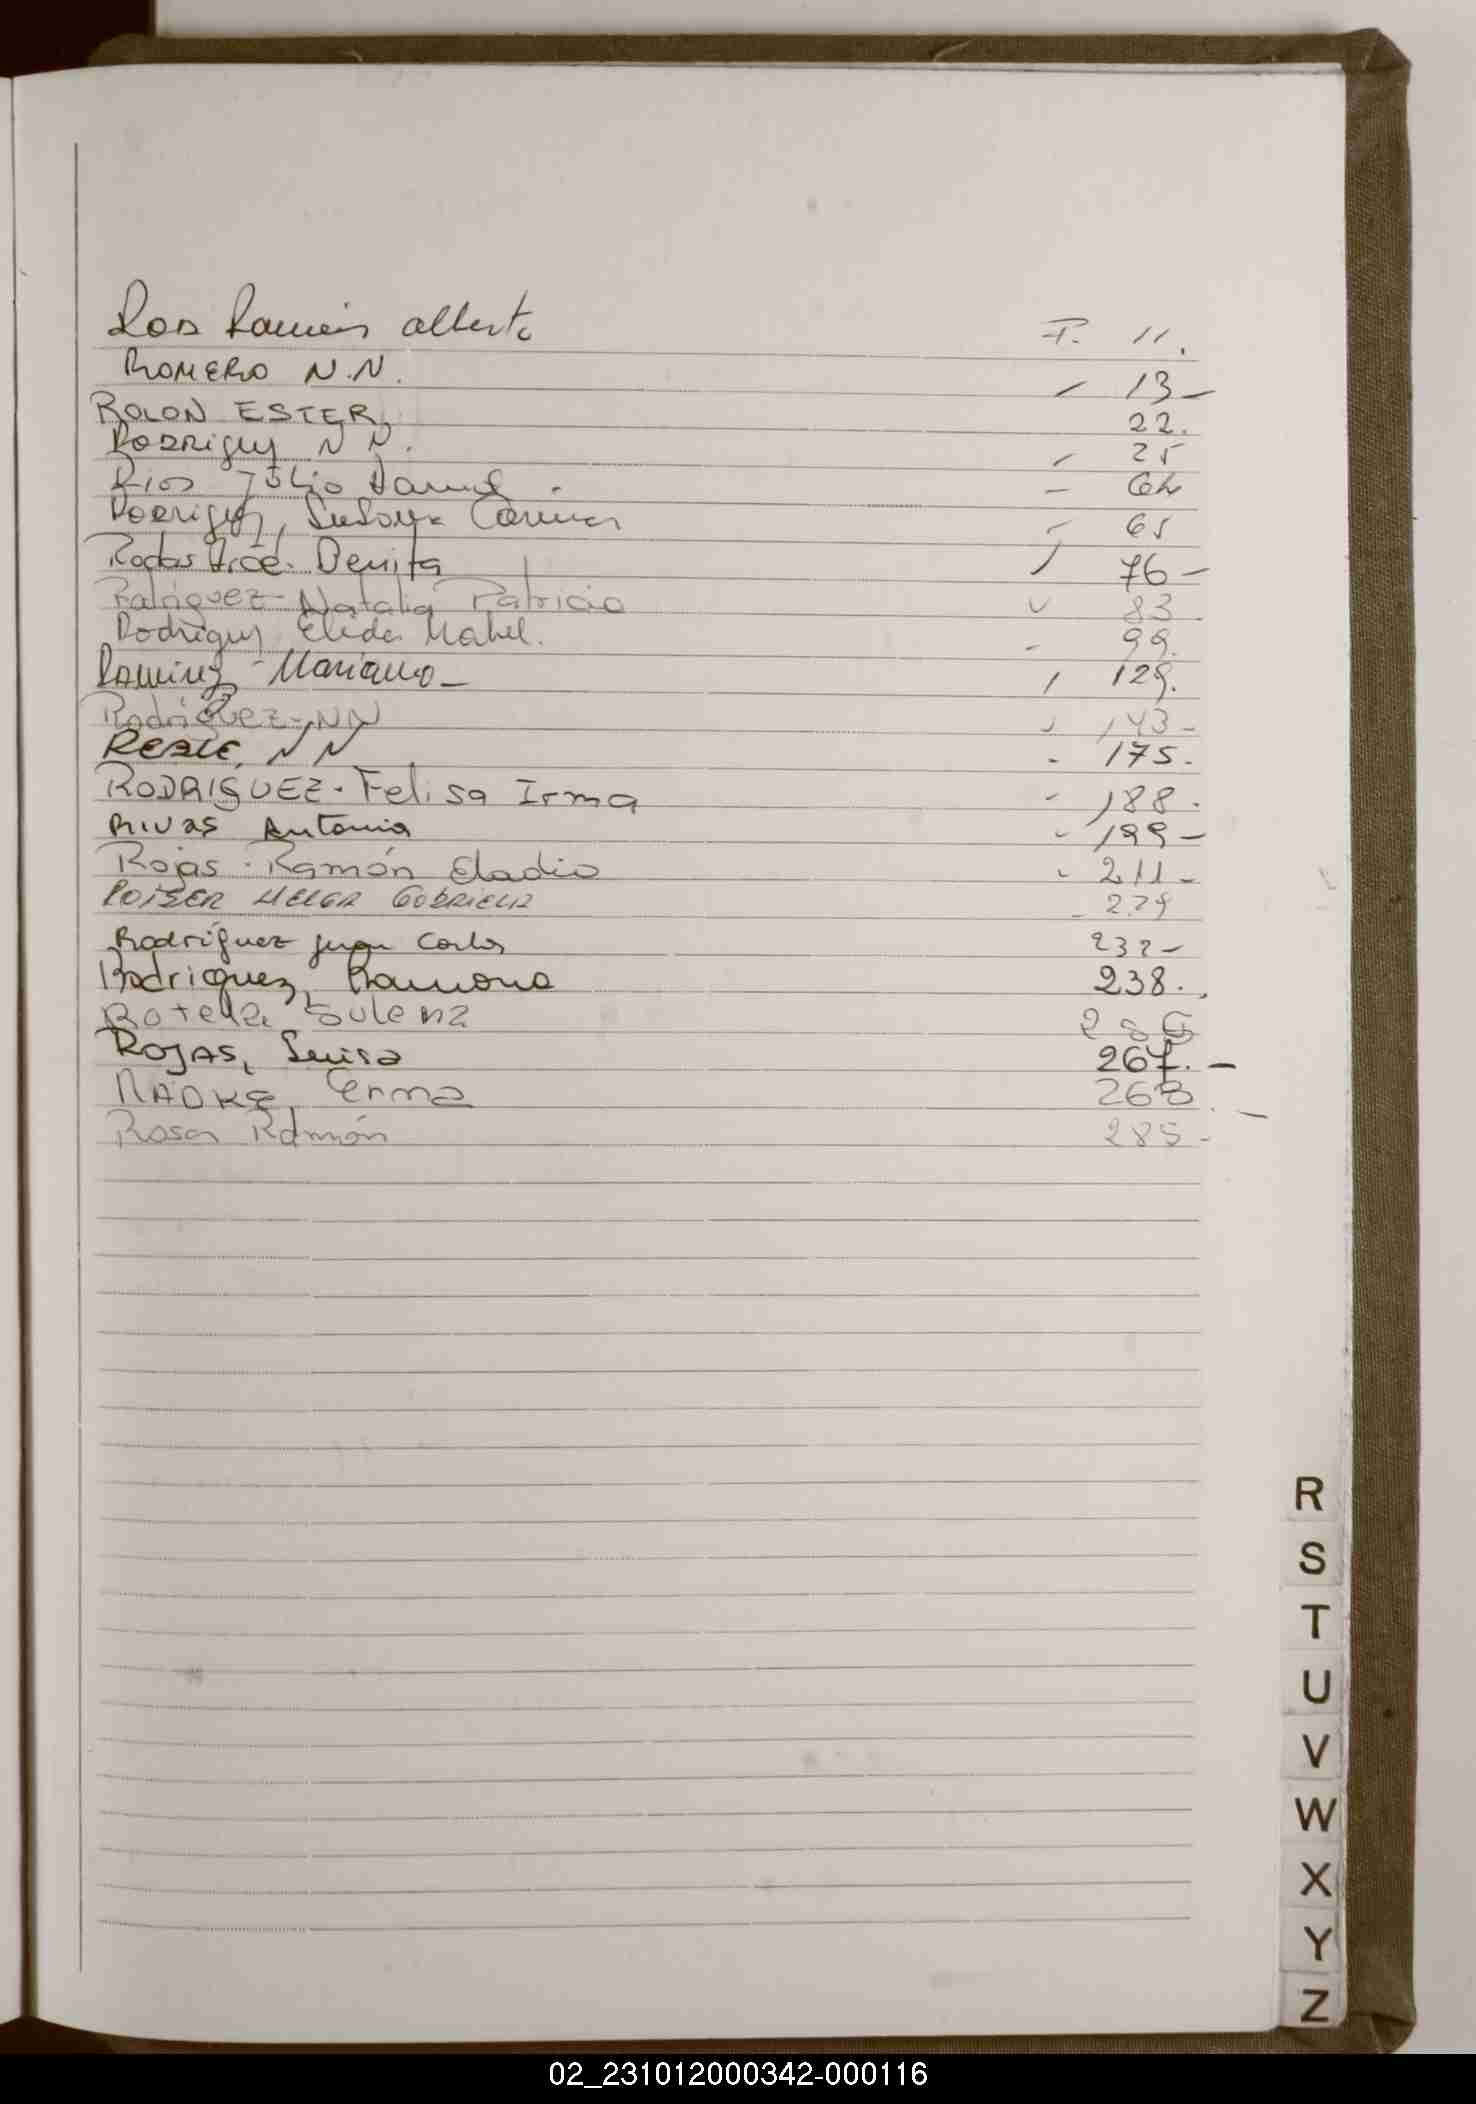 Ramón Alberto F. 11.
ROMERO N.N. - 13-
ROLON ESTER, 22.
Rodriguez N N. - 25
Rios Julio Daniel. - 64
Rodriguez, Susana Carina - 65
Rodas Arce. Benita / 76-
Rodriguez- Natalia Patricia 83.
Rodriguez Elida Mabel. - 99.
Ramirez - Mariano- / 129.
Rodríguez-NN 143-
REALE, N N - 175.
RODRIGUEZ- Felisa Irma - 188.
RIVAS Antonia - 199-
Rojas - Ramón Eladio - 211-
HELGA GABRIELA - 229
Rodríguez Juan Carlos 232-
Rodriguez, Ramona 238.
Rotela,
ROJAS, Luisa 267.-
Erma 268.-
Rosa Ramón 285-
R
S
T
U
V
W
X
Y
Z
02_231012000342-000116